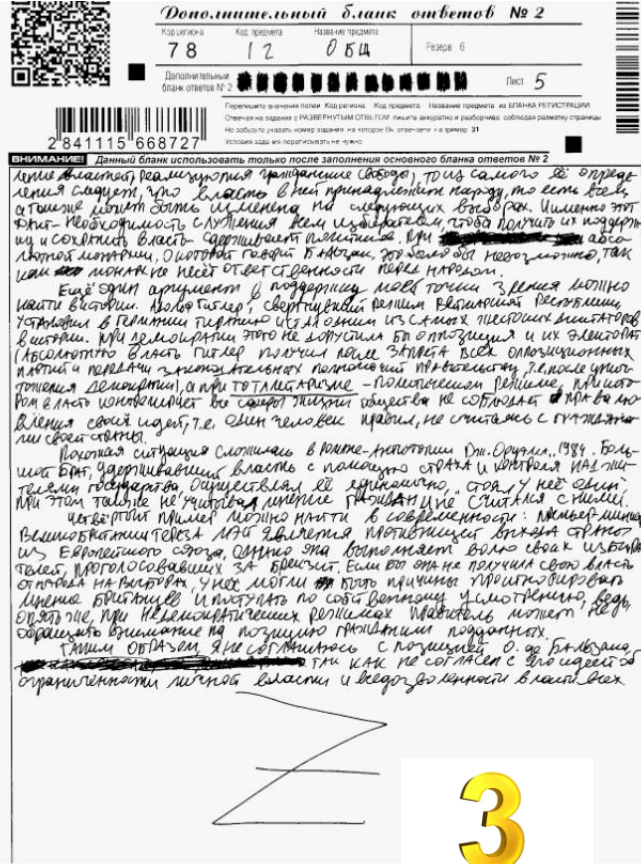 Дополнительный бланк ответов № 2
Код региона Код предмета Название предмета
78 12 ОБЩ Резерв 6
Дополнительный бланк ответов № 2 Лист 5
Перепишите значения полей Код региона Код предмета Название предмета из БЛАНКА РЕГИСТРАЦИИ
Отвечая на задания с РАЗВЕРНУТЫМ ОТВЕТОМ пишите аккуратно и разборчиво соблюдая разметку страницы
Не забудьте указать номер задания на которое Вы отвечаете например 31
Условия задания переписывать не нужно
2841115 668727
ВНИМАНИЕ! Данный бланк использовать только после заполнения основного бланка ответов № 2
ление властей, реализуются гражданские свободы), то из самого её опреде-
ления следует, что власть в ней принадлежит народу, то есть всем,
а также может быть изменена на следующих выборах. Именно этот
факт - необходимость служения всем избирателям, чтобы получить их поддерж-
ку и сохранить власть - сдерживает политиков. При абсо-
лютной монархии, о которой говорит Бальзак, это было бы невозможно, так
как монарх не несёт ответственности перед народом.
Ещё один аргумент в поддержку моей точки зрения можно
найти в истории. Адольф Гитлер, свергнувший режим Веймарской Республики,
установил в Германии тиранию и стал одним из самых жестоких диктаторов
в истории. При демократии этого не допустила бы оппозиция и их электорат
(Абсолютную власть Гитлер получил после запрета всех оппозиционных
партий и передачи законодательных полномочий правительству, т.е. после уничто-
жения демократии), а при тоталитаризме - политическом режиме, при кото-
ром власть контролирует все сферы жизни общества не соблюдает права
своей т.е. один человек правил, не считаясь с гражданa-
ми своей страны.
Похожая ситуация сложилась в романе-антиутопии Дж. Оруэлла "1984". Боль-
шой Брат, удерживавший власть с помощью страха и контроля над жи-
телями государства, осуществлял её единолично, стоя у неё один
при этом также не учитывал мнение граждан и не считался с ними.
Четвёртый пример можно найти в современности: премьер-министр
Великобритании Тереза Мэй является противницей выхода страны
из Европейского союза, однако она выполняет волю своих избира-
телей, проголосовавших за Брекзит. Если бы она не получила свою власть
от народа на выборах, у неё могли быть причины проигнорировать
мнение британцев и поступать по собственному усмотрению, ведь,
опять же, при недемократических режимах правитель может не
обращать внимание на позицию граждан или подданных.
Таким образом, я не соглашаюсь с позицией О. де Бальзака,
так как не согласен с его идеей об
ограниченности личной власти и вседозволенности власти всех
3